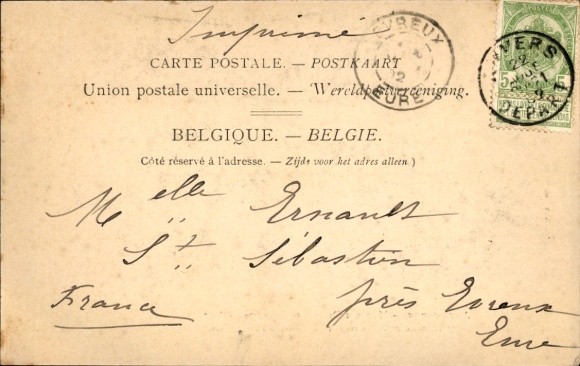 Imprimé
EVREUX
EURE
ANVERS
DEPART
CARTE POSTALE. — POSTKAART
Union postale universelle. — Wereldpostvereeniging.
BELGIQUE. — BELGIE.
Côté réservé à l'adresse. — Zijde voor het adres alleen.)
Melle Ernault
St Sébastien
France près Evreux
Eure